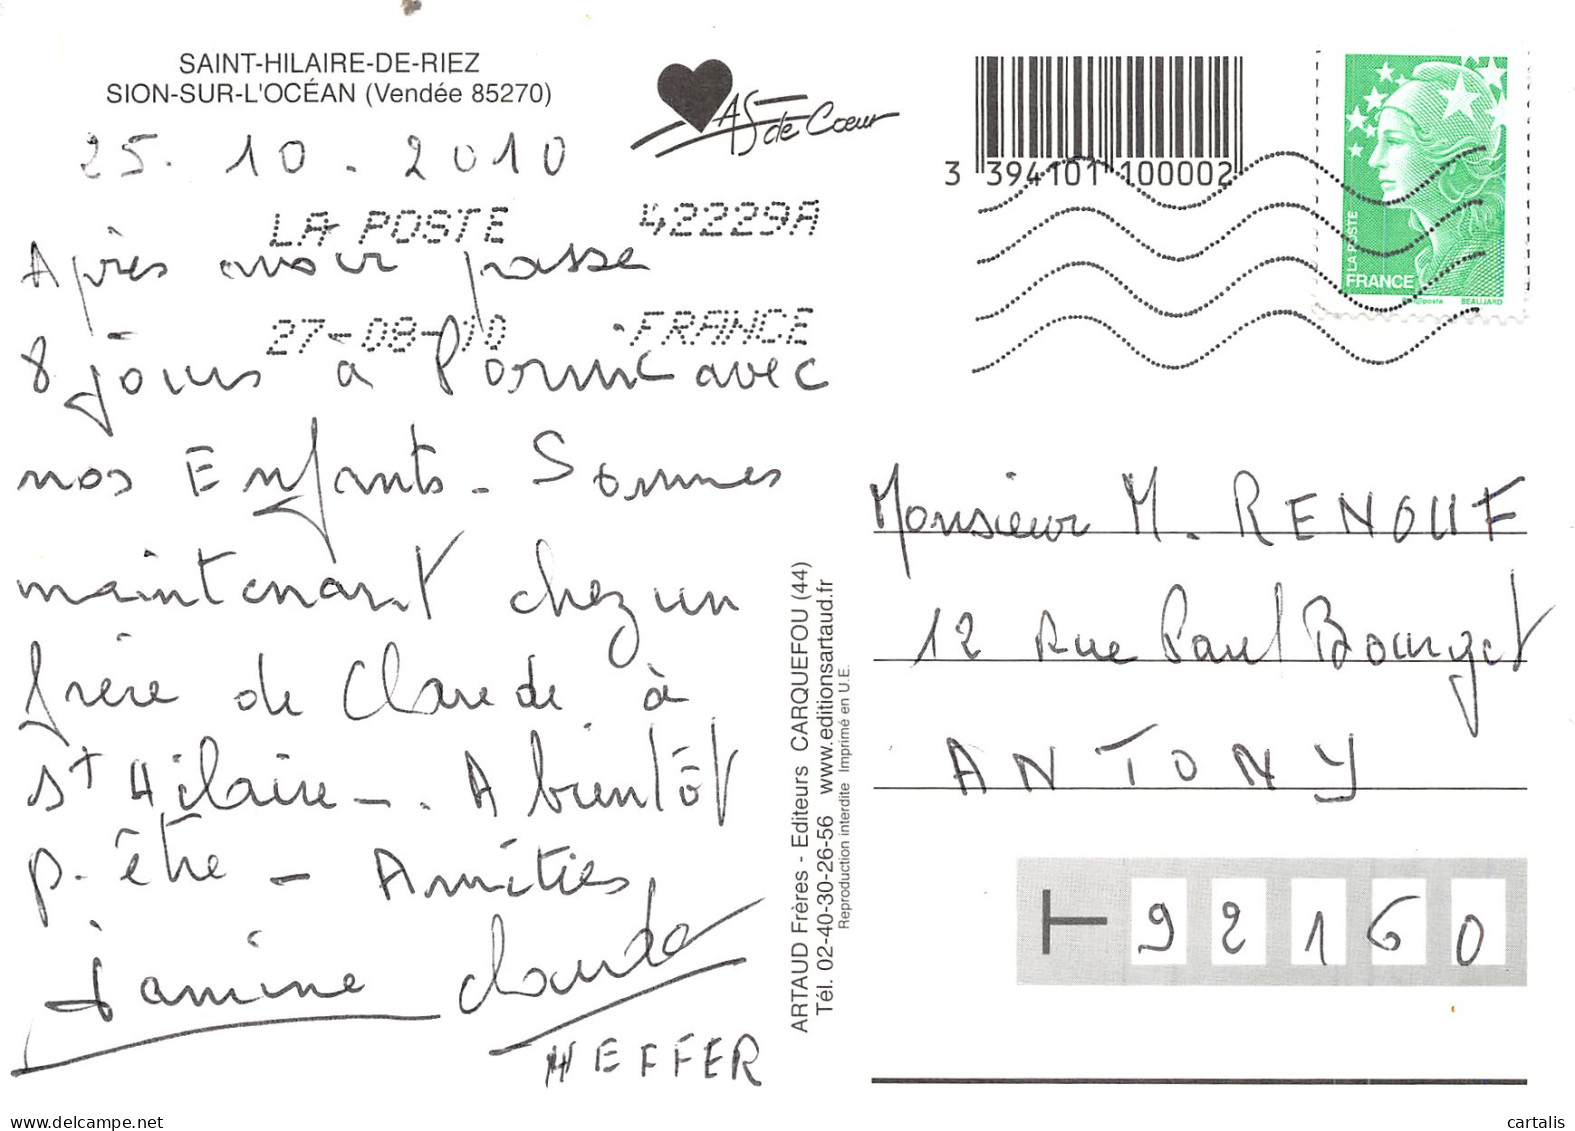 SAINT-HILAIRE-DE-RIEZ
SION-SUR-L'OCÉAN (Vendée 85270)
AS de Cœur
3 394101 100002
LA POSTE
FRANCE
phil@poste BEAUJARD
25. 10. 2010
LA POSTE 42229A
27-08-10 FRANCE
Après avoir passe
8 jours à Pornic avec
nos Enfants. Sommes
maintenant chez un
frère de Claude à
St Hilaire -. A bientôt
p. être - Amitiés
Janine Claude
HEFFER
ARTAUD Frères - Editeurs CARQUEFOU (44)
Tél. 02-40-30-26-56 www.editionsartaud.fr
Reproduction interdite Imprimé en U.E.
Monsieur M. RENOUF
12 Rue Paul Bourget
ANTONY
T 92160
cartalis